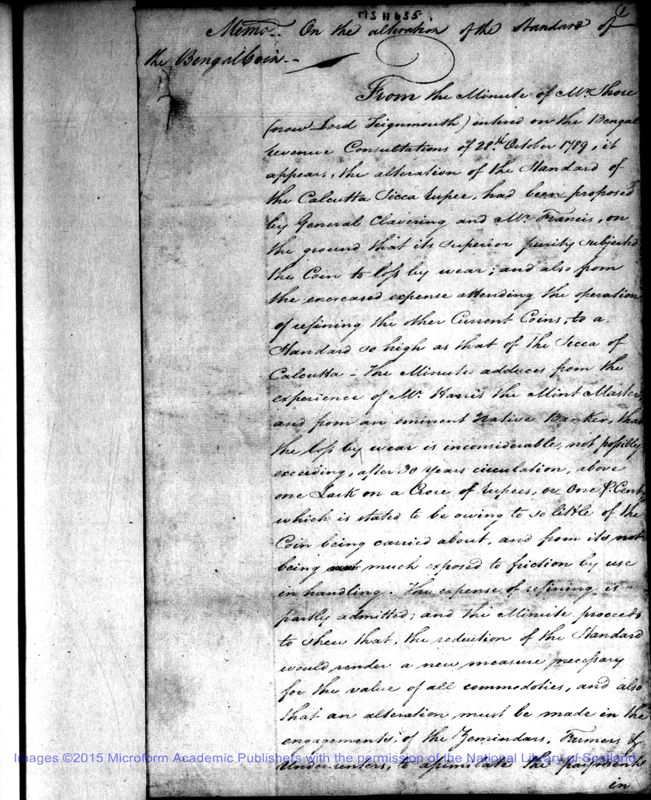 MS 11655.
Memo. On the alteration of the Standard of
the Bengal Coin.
From the Minute of Mr. Shore
(now Lord Teignmouth) entered on the Bengal
Revenue Consultations of 28th October 1789, it
appears, the alteration of the Standard of
the Calcutta Sicca Rupee, had been proposed
by General Clavering and Mr. Francis, on
the ground that its superior purity subjected
the Coin to loss by wear; and also from
the increased expense attending the operation
of refining the other Current Coins, to a
Standard so high as that of the Sicca of
Calcutta - The Minute adduces from the
experience of Mr. Harris the Mint Master
and from an eminent Native Banker, that
the loss by wear is inconsiderable, not possibly
exceeding, after 30 years circulation, above
one Lack on a Crore of Rupees, or One P. Cent,
which is stated to be owing to so little of the
Coin being carried about, and from its not
being much exposed to friction by use
in handling. The expense of refining is
partly admitted; and the Minute proceeds
to shew that, the reduction of the Standard
would render a new measure necessary
for the value of all commodities, and also
that an alteration must be made in the
engagements, of the Zemindars, Farmers &
Under-renters, to assimilate the payments
in
Images ©2015 Microform Academic Publishers with the permission of the National Library of Scotland